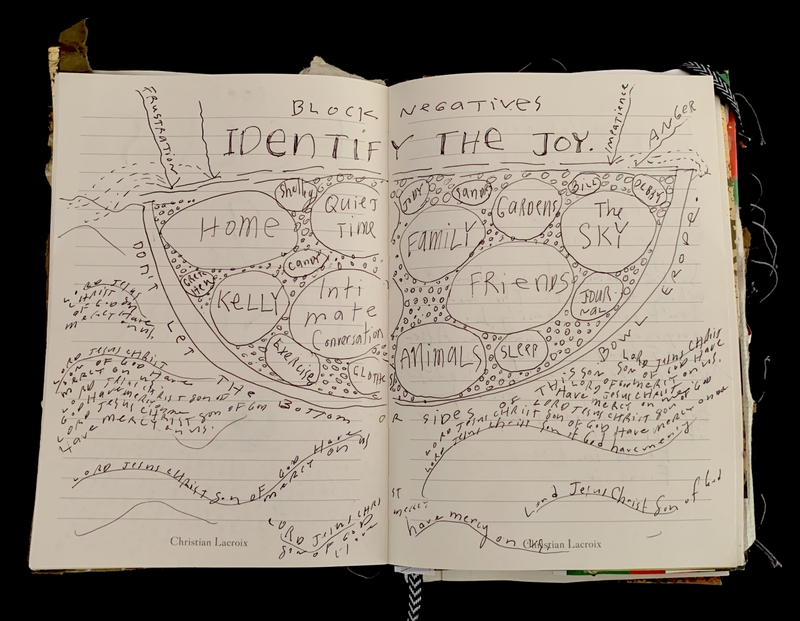 FRUSTRATION
BLOCK NEGATIVES
IMPATIENCE
ANGER
IDENTIFY THE JOY.
Shelley
QUIET
TIME
HOME
JODY
SANDY
GARDENS
BILL
DEBBY
The
SKY
FAMILY
CANDY
KELLY
Inti
mate
Conversation
FRIENDS
JOUR-
nal
Exercise
CLOTHES
ANIMALS
SLEEP
DON'T LET THE BOTTOM OR SIDES OF THIS BOWL ERODE.
LORD JESUS
CHRIST
SON OF GOD
mercy Have
on us.
LORD JESUS CHRIST
SON OF GOD Have
mercy on us
LORD JESUS CHRIST SON OF
GOD Have mercy
LORD JESUS CHRIST SON OF GOD
Have mercy on us.
LORD JESUS CHRIST SON OF GOD Have
mercy on us
LORD JESUS CHRIST
SON OF GOD
LORD JESUS CHRIST
SON OF GOD Have
mercy on us.
LORD JESUS CHRIST
Have mercy on us
LORD JESUS CHRIST SON OF GOD
LORD JESUS CHRIST SON OF GOD Have mercy on us
Lord Jesus Christ son of God have mercy
Lord Jesus Christ Son of God
have mercy on us
Christian Lacroix
Christian Lacroix